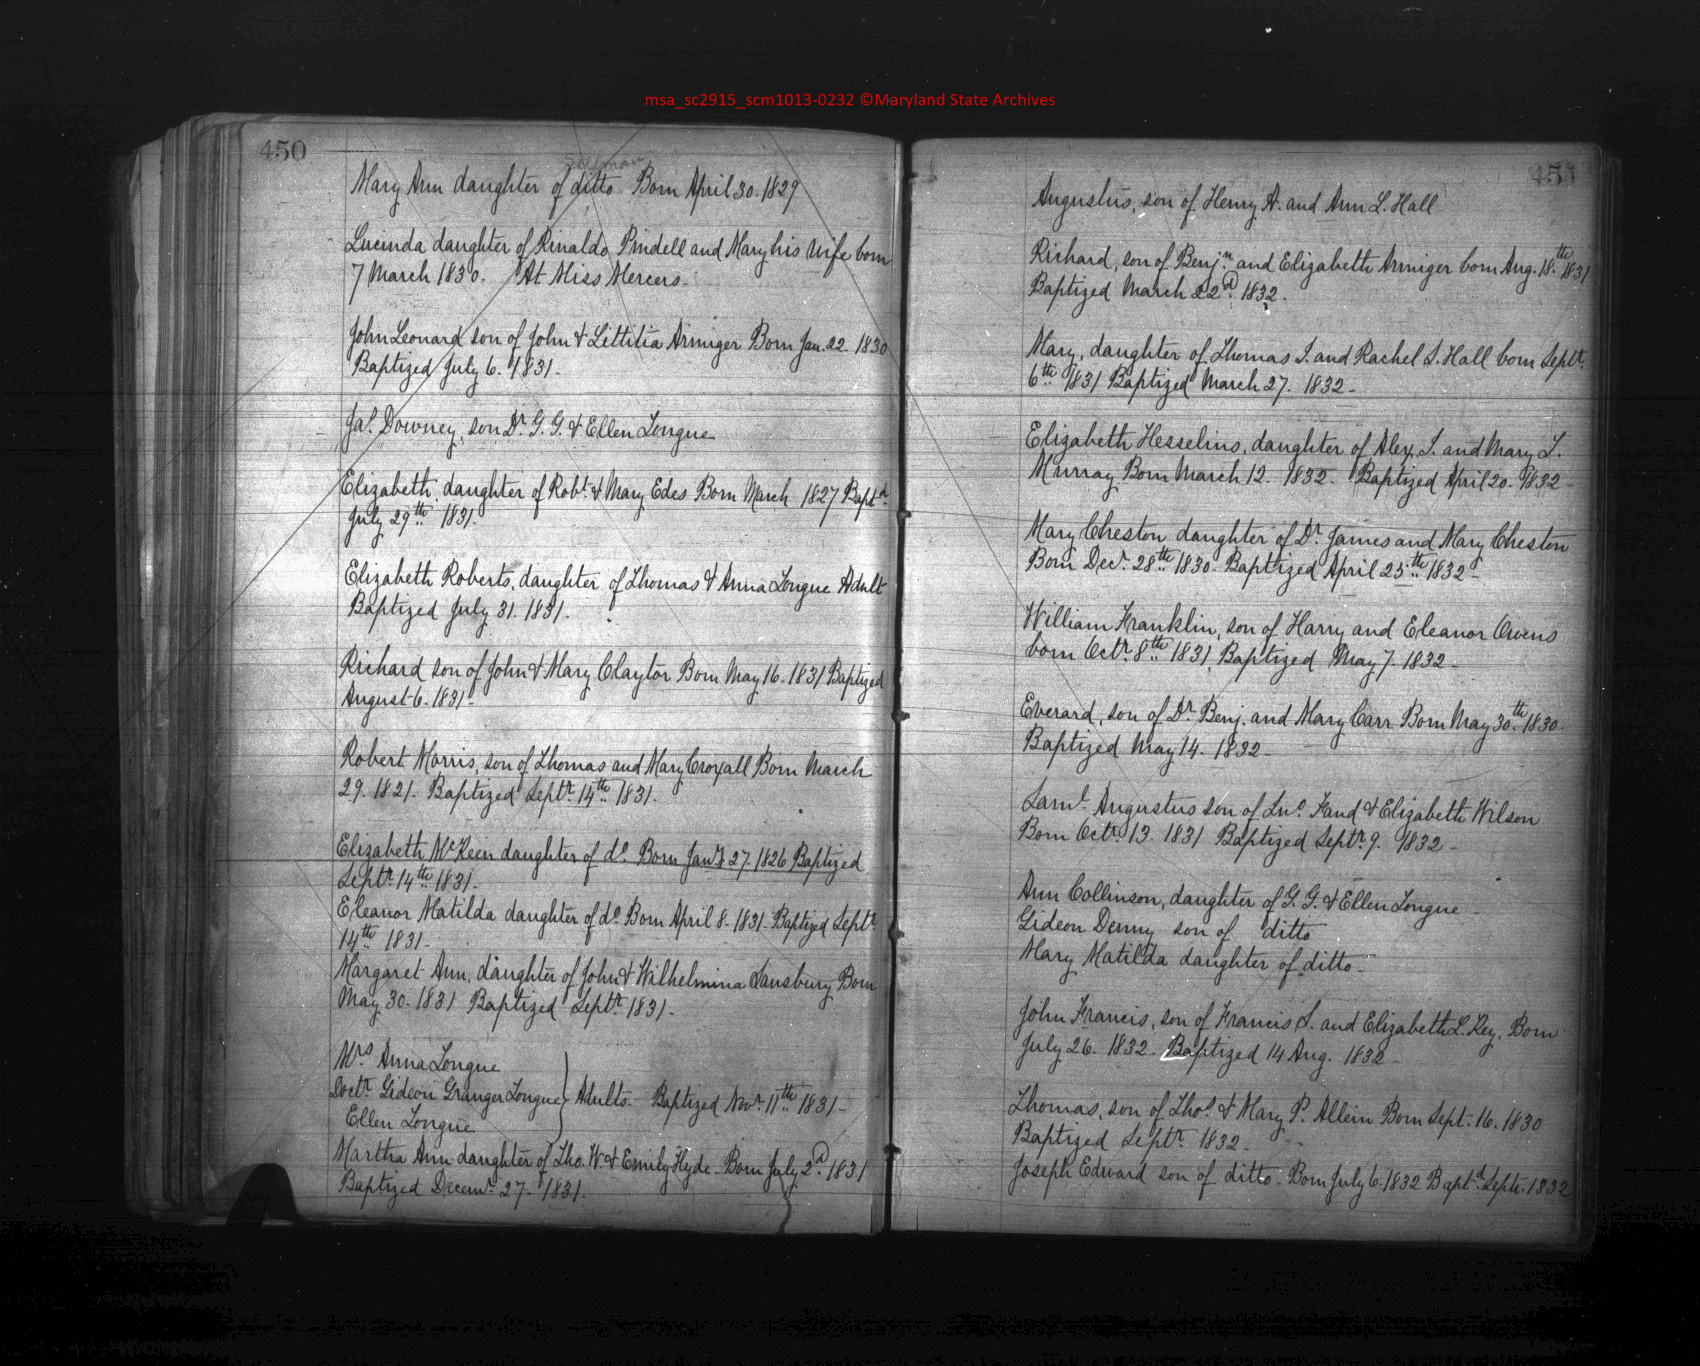 msa_sc2915_scm1013-0232 ©Maryland State Archives
450
Sellman
Mary Ann daughter of ditto Born April 30. 1829
Lucinda daughter of Rinaldo Pindell and Mary his wife born
7 March 1830. At Miss Mercers.
John Leonard son of John & Littitia Armiger Born Jan. 22. 1830
Baptized July 6. 1831.
Jas. Downey, son Dr. G. G. & Ellen Tongue
Elizabeth daughter of Robt. & Mary Edes Born March 1827 Baptd.
July 29th 1831.
Elizabeth Roberts, daughter of Thomas & Anna Tongue Adult
Baptized July 31. 1831.
Richard son of John & Mary Claytor Born May 16. 1831 Baptized
August 6. 1831.
Robert Morris, son of Thomas and Mary Croxall Born March
29. 1821. Baptized Septr. 14th 1831.
Elizabeth McKeen daughter of do. Born Jany. 27. 1826 Baptized
Septr. 14th 1831.
Eleanor Matilda daughter of do. Born April 8. 1831. Baptized Septr.
14th 1831.
Margaret Ann, daughter of John & Wilhelmina Sansbury Born
May 30. 1831 Baptized Septr. 1831.
Mrs Anna Tongue
Doctr. Gideon Granger Tongue } Adults. Baptized Novr. 11th 1831.
Ellen Tongue
Martha Ann daughter of Tho. W. & Emily Hyde. Born July 2d 1831
Baptized Decemr. 27. 1831.
451
Augustus, son of Henry A. and Ann L. Hall
Richard, son of Benjn. and Elizabeth Armiger born Aug. 18th 1831
Baptized March 22d 1832.
Mary, daughter of Thomas J. and Rachel S. Hall born Septr.
6th 1831 Baptized March 27. 1832.
Elizabeth Hesselius, daughter of Alex. J. and Mary T.
Murray Born March 12. 1832. Baptized April 20. 1832
Mary Cheston daughter of Dr. James and Mary Cheston
Born Decr. 28th 1830. Baptized April 25th 1832
William Franklin, son of Harry and Eleanor Owens
born Octr. 8th 1831, Baptized May 7. 1832
Everard, son of Dr. Benj. and Mary Carr Born May 30th 1830.
Baptized May 14. 1832
Saml. Augustus son of Jno. Fand & Elizabeth Wilson
Born Octr. 13. 1831 Baptized Septr. 9. 1832
Ann Collinson, daughter of G. G. & Ellen Tongue
Gideon Denny son of ditto
Mary Matilda daughter of ditto
John Francis, son of Francis S. and Elizabeth L. Key, Born
July 26. 1832. Baptized 14 Aug. 1832
Thomas, son of Thos. & Mary P. Allein Born Sept. 16. 1830
Baptized Septr. 1832.
Joseph Edward son of ditto. Born July 6. 1832 Baptd. Septr. 1832